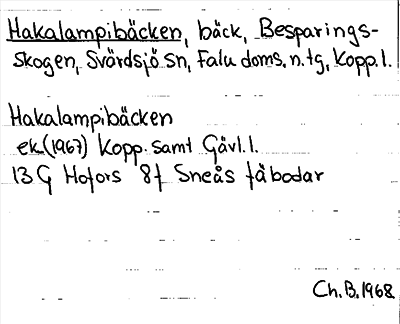 Hakalampibäcken, bäck, Besparings-
skogen, Svärdsjö sn, Falu doms. n. tg, Kopp. l.
Hakalampibäcken
ek (1967) Kopp. samt Gävl. l.
13 G Hofors 8f Sneås fäbodar
Ch. B. 1968